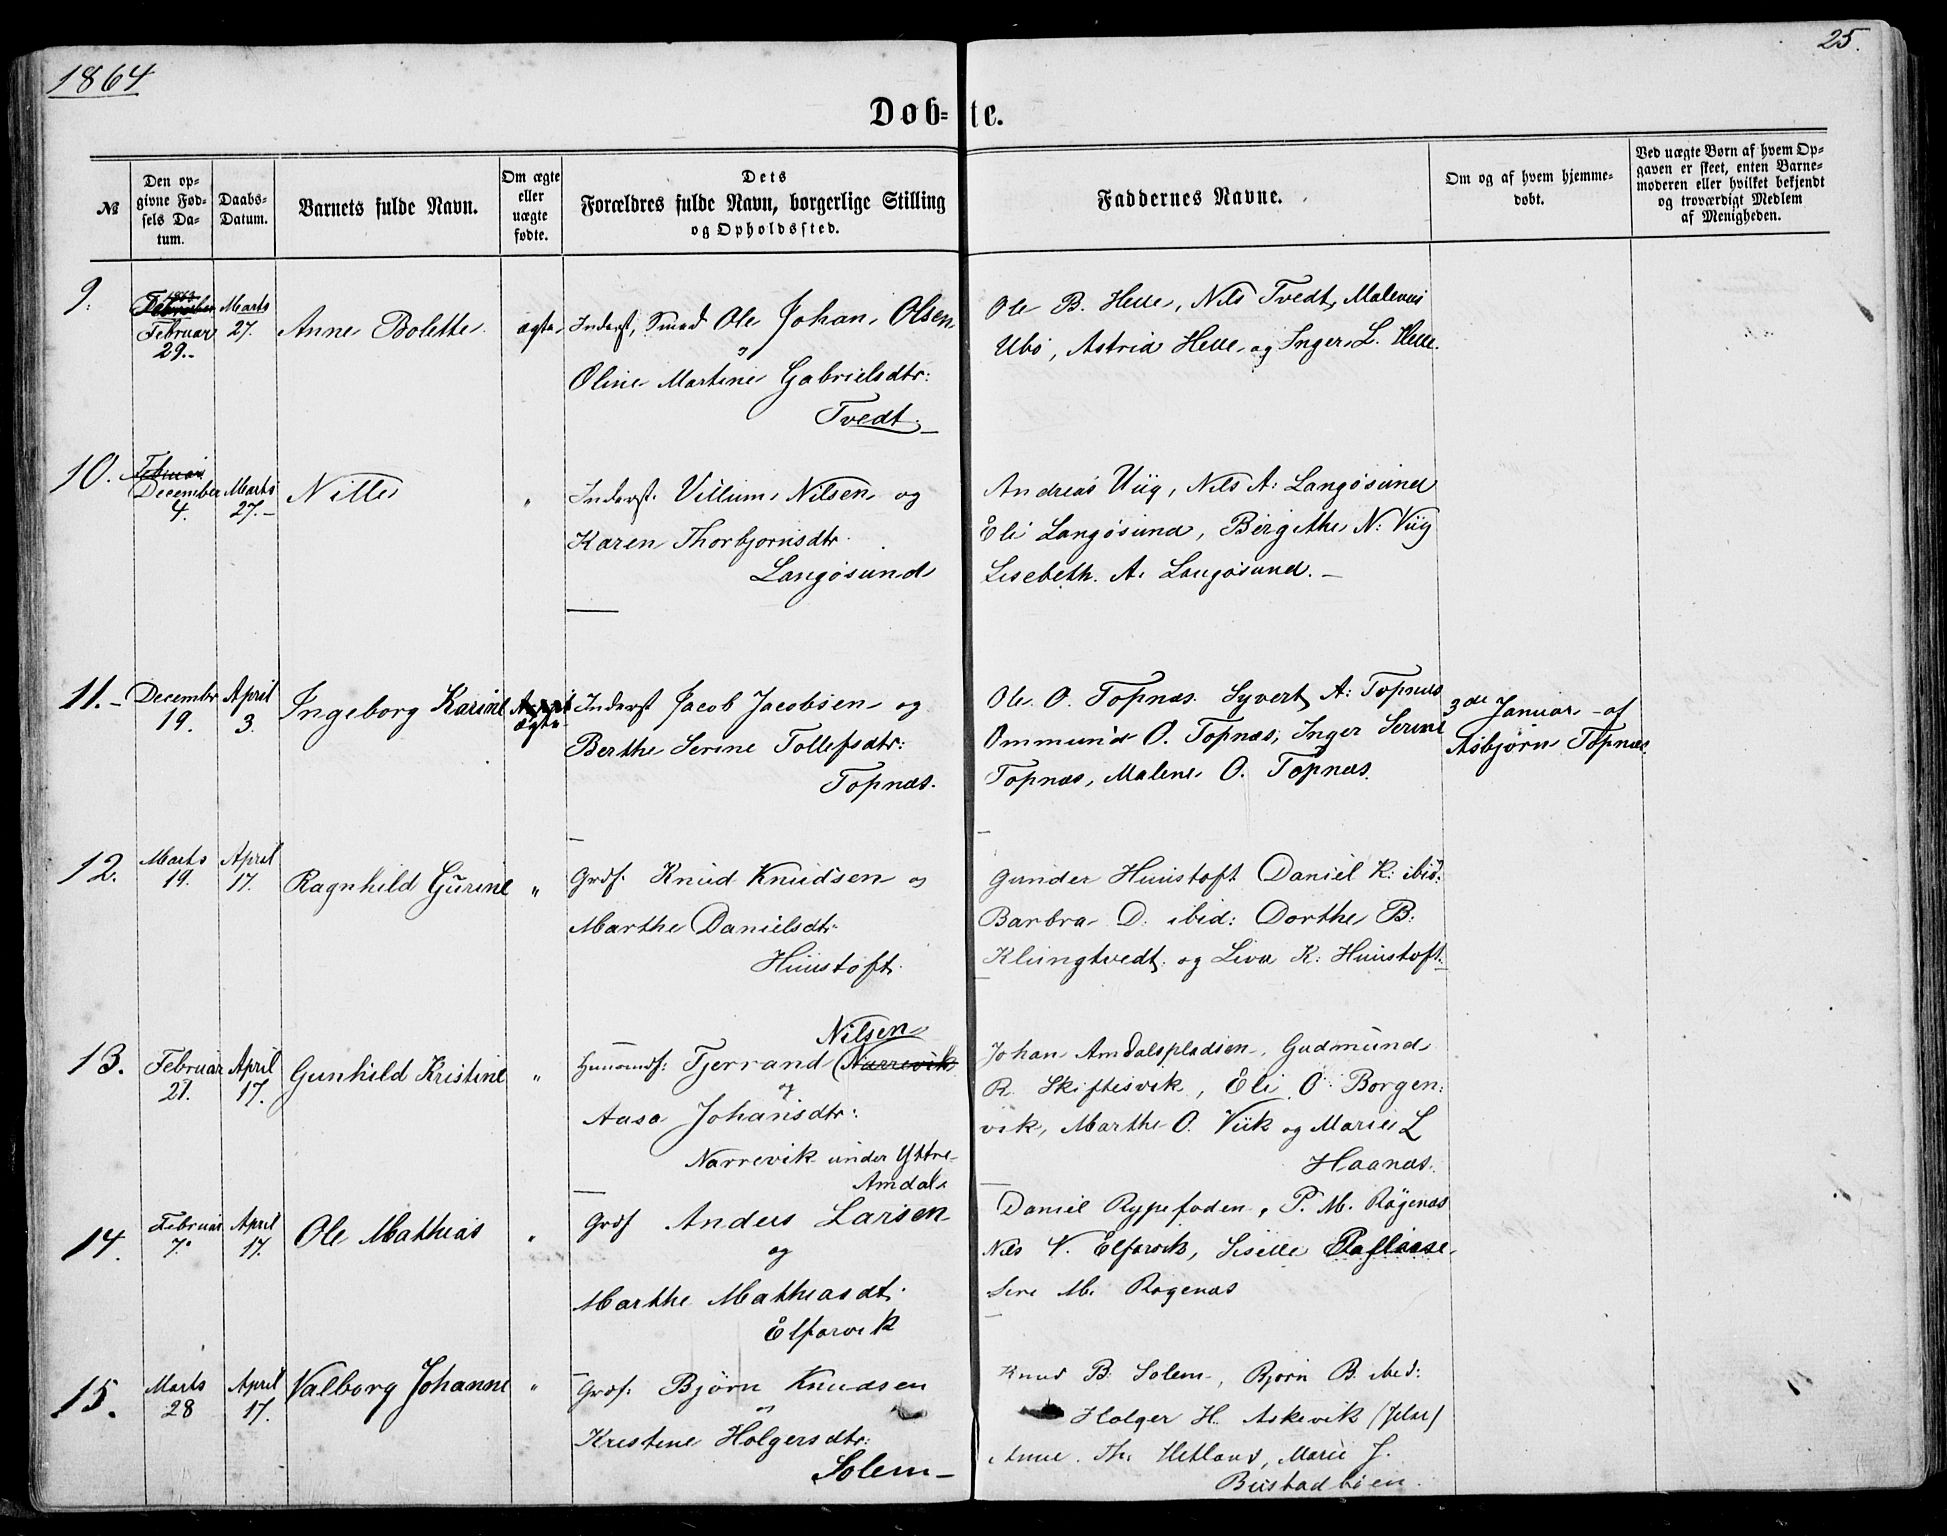 1864
25.
Døb-te.
№
Den op-
givne Fød-
sels Da-
tum.
Daabs-
Datum.
Barnets fulde Navn.
Om ægte
eller
uægte
fødte.
Dets
Forældres fulde Navn, borgerlige Stilling
og Opholdssted.
Faddernes Navne.
Om og af hvem hjemme-
døbt.
Ved uægte Børn af hvem Op-
gaven er skeet, enten Barne-
moderen eller hvilket bekjendt
og troværdigt Medlem
af Menigheden.
9.
Februar
29.
Marts
27.
Anne Bolette
ægte
Inderst, Smed Ole Johan Olsen
Oline Martine Gabrielsdtr:
Tvedt.
Ole B. Helle, Nils Tvedt, Malenus
Ubø, Astrid Helle og Inger L. Helle.
10.
Februar
December
4.
Marts
27.
Nille
"
Inderst. Villum Nilsen og
Karen Thorbjørnsdtr.
Langøsund
Andreas Viig, Nils A: Langøsund
Eli Langøsund, Birgithe N: Viig
Lisebeth. A. Langøsund.
11.
Decembr
19.
April
3.
Ingeborg Karine
ægte
Inderst Jacob Jacobsen og
Berthe Serine Tollefsdtr:
Topnæs.
Ole O. Topnæs. Syvert A: Topnæs
Ommund O. Topnæs, Inger Serine
Topnæs, Malene O. Topnæs.
3de Januar af
Asbjørn Topnæs
12.
Marts
19.
April
17.
Ragnhild Gurine
"
Grdf. Knud Knudsen og
Marthe Danielsdtr.
Huustoft.
Gunder Huustoft Daniel K: ibid:
Barbra D. ibid: Dorthe B:
Klungtvedt og Liva K: Huustoft.
13.
Februar
21.
April
17.
Gunhild Kristine
"
Nilsen
Huusmdf: Tjerrand (Narrevik
og
Aasa Johansdtr:
Narrevik under Yttre
Amdal
Johan Amdalspladsen, Gudmund
R. Skiftesvik, Eli O. Borgen:
vik, Marthe O. Viik og Marie L
Haanæs.
14.
Februar
7.
April
17.
Ole Mathias
"
Grdf Anders Larsen
og
Marthe Mathiasdt.
Elfarvik
Daniel Rypefoden, P. M. Røgenæs
Nils V. Elfarvik, Siselle
Sere M. Røgenæs
15.
Marts
28
April
17.
Valborg Johanne
"
Grdf. Bjørn Knudsen
"
Kristine Holgersdtr:
Solem
Knud B. Solem, Bjørn B. ibid:
Holger H. Askevik (Jelse)
Anne Th. Hetland, Marie J.
Bustadbøen.